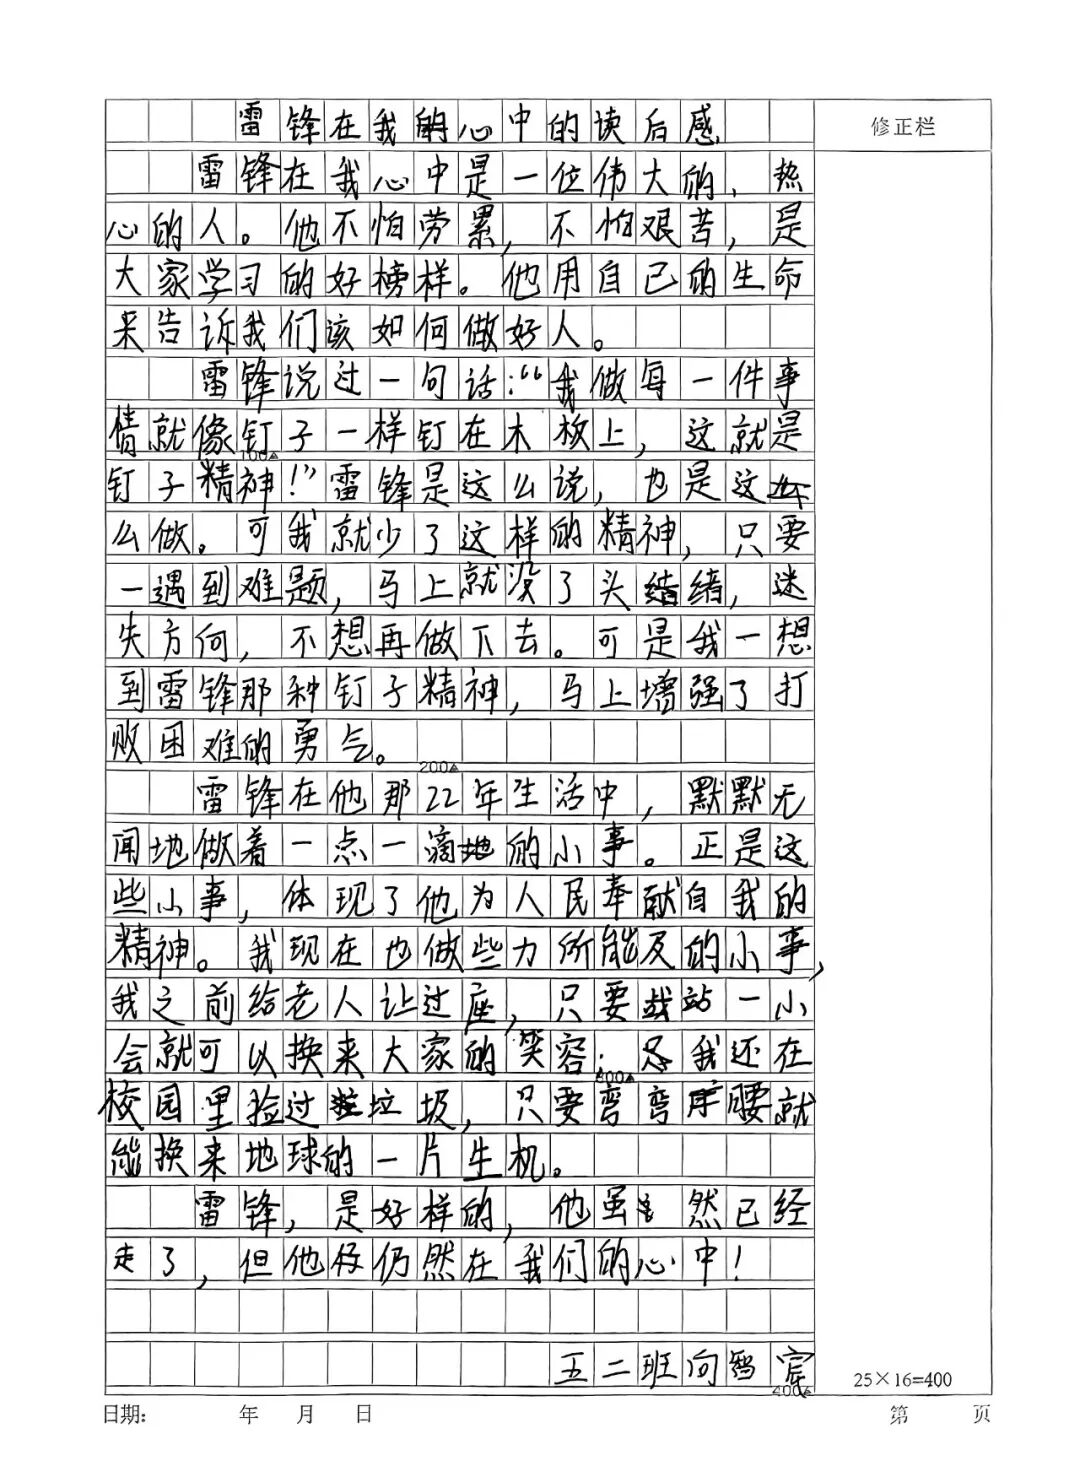 雷锋在我的心中的读后感
修正栏
雷锋在我心中是一位伟大的、热
心的人。他不怕劳累，不怕艰苦，是
大家学习的好榜样。他用自己的生命
来告诉我们该如何做好人。
雷锋说过一句话：“我做每一件事
情就像钉子一样钉在木板上，这就是
100▲
钉子精神！”雷锋是这么说，也是这
么做。可我就少了这样的精神，只要
一遇到难题，马上就没了头绪，迷
失方向，不想再做下去。可是我一想
到雷锋那种钉子精神，马上增强了打
败困难的勇气。
200▲
雷锋在他那22年生活中，默默无
闻地做着一点一滴的小事。正是这
些小事，体现了他为人民奉献自我的
精神。我现在也做些力所能及的小事，
我之前给老人让过座，只要站一小
会就可以换来大家的笑容；我还在
300▲
校园里捡过垃圾，只要弯弯腰就
能换来地球的一片生机。
雷锋，是好样的，他虽然已经
走了，但他仍然在我们的心中！
五二班向智
400▲
25×16=400
日期： 年 月 日
第 页